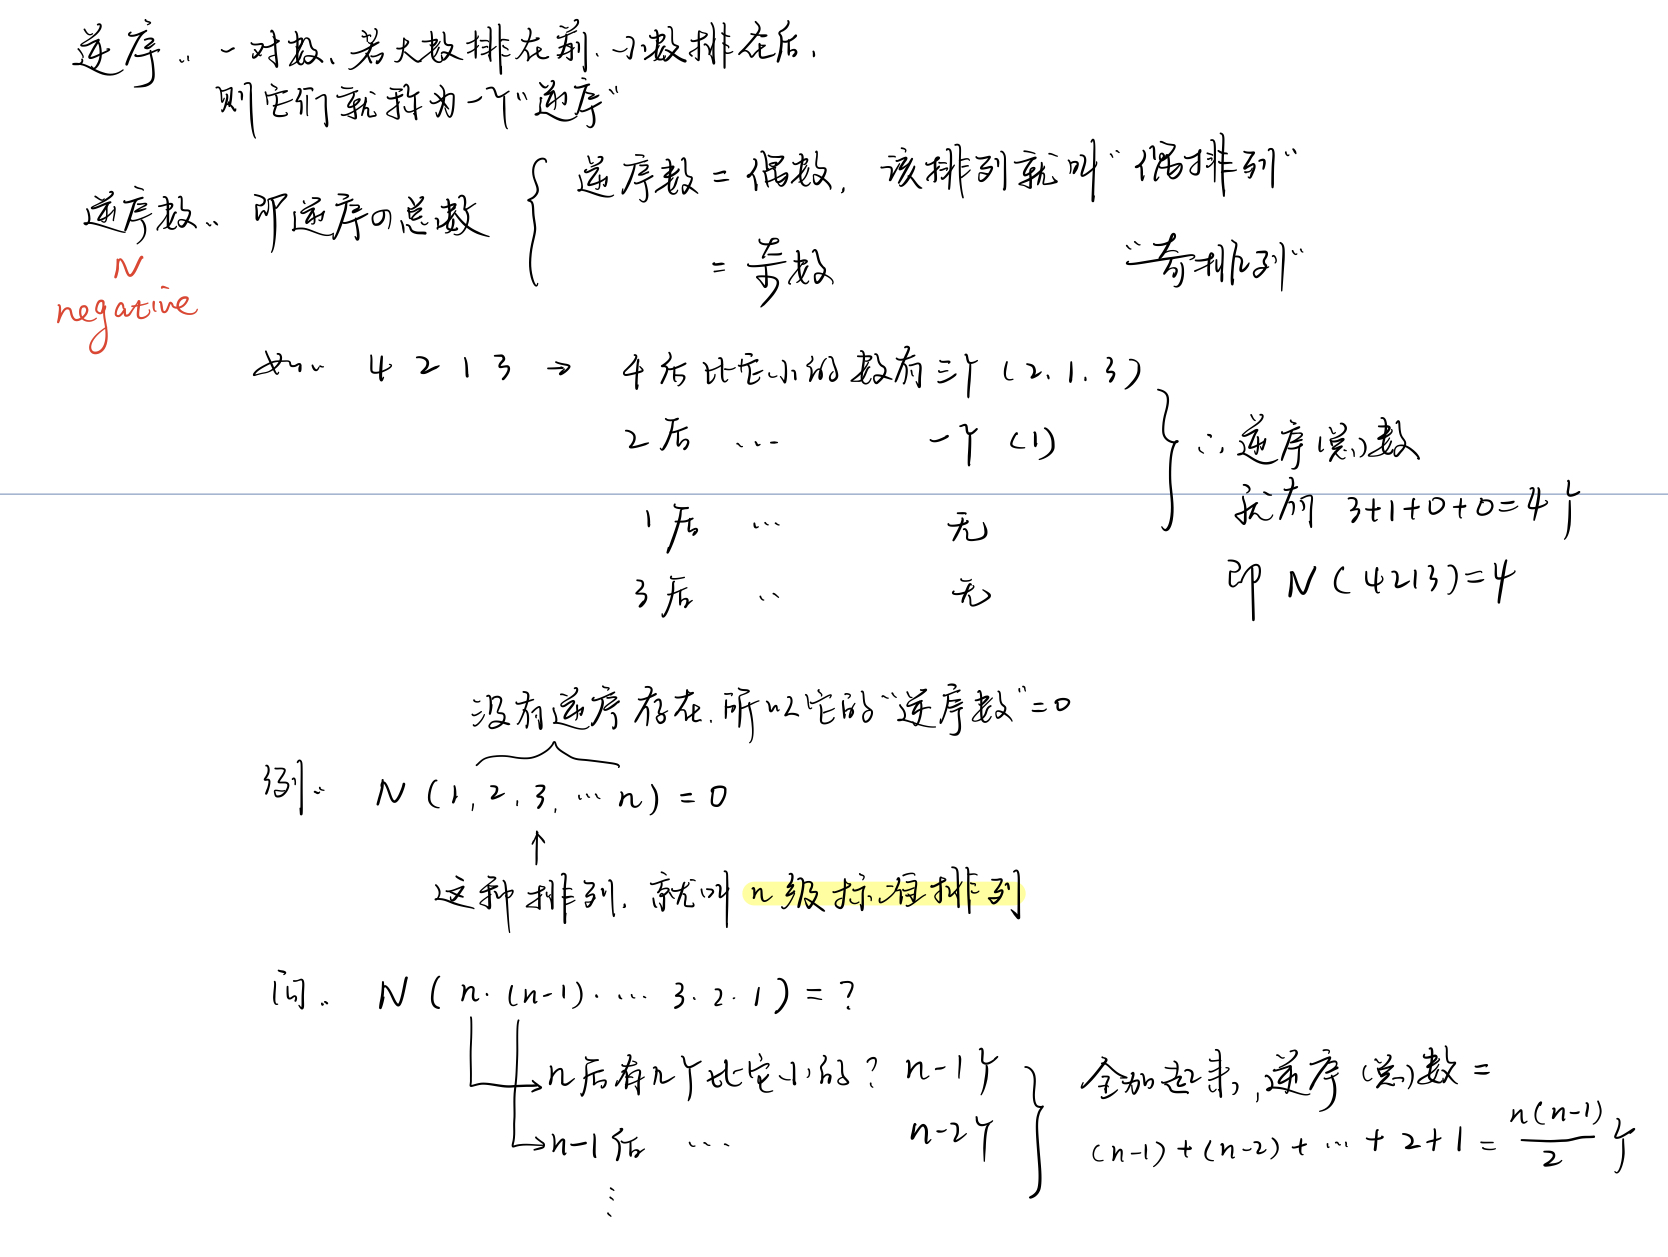 逆序: 一对数、若大数排在前、小数排在后,
则它们就称为一个"逆序"
逆序数: 即逆序の总数 { 逆序数 = 偶数, 该排列就叫"偶排列"
= 奇数 "奇排列"
N
negative
如: 4 2 1 3 → 4后比它小的数有三个 (2.1.3)
2后 ... 一个 (1)
1后 ... 无
3后 .. 无
∴ 逆序(总)数
就有 3+1+0+0=4个
即 N(4213)=4
没有逆序存在,所以它的"逆序数"=0
例: N(1,2,3,...n)=0
↑
这种排列, 就叫 n级标准排列
问: N(n·(n-1)·...3·2·1)=?
→n后有几个比它小的? n-1个
→n-1后 ... n-2个
⋮
全加起来,逆序(总)数=
(n-1)+(n-2)+...+2+1=n(n-1)/2个